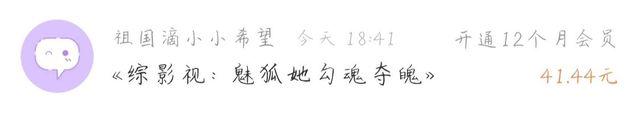 祖国滴小小希望 今天 18:41 开通12个月会员
《综影视：魅狐她勾魂夺魄》 41.44元